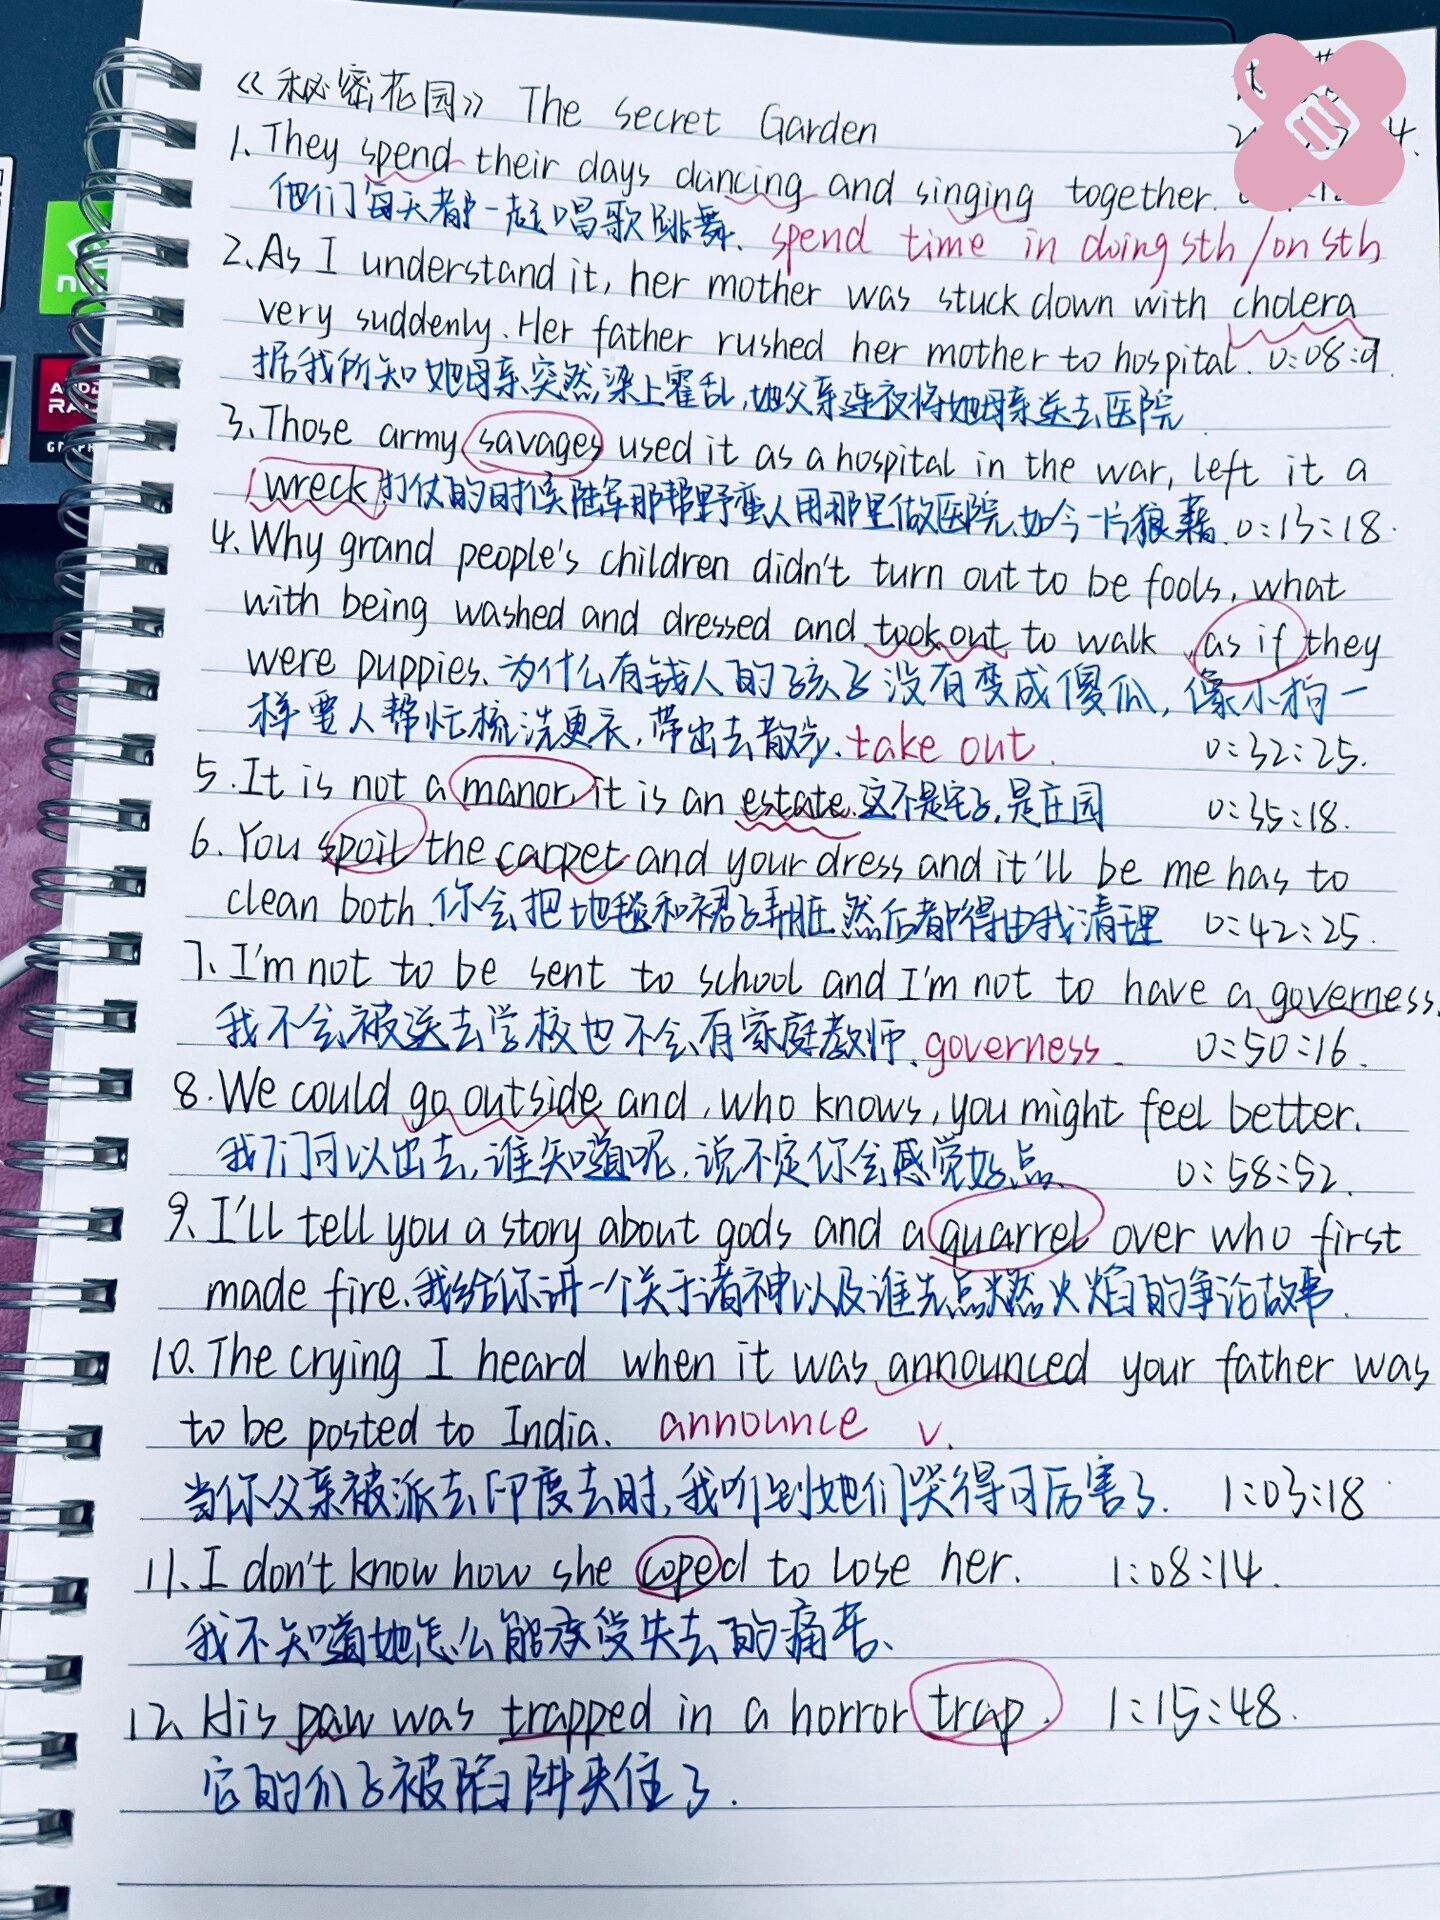 《秘密花园》 The Secret Garden
1. They spend their days dancing and singing together.
他们每天都一起唱歌跳舞. spend time in doing sth/on sth
2. As I understand it, her mother was stuck down with cholera
very suddenly. Her father rushed her mother to hospital. 0:08:9
据我所知她母亲突然染上霍乱,她父亲连夜将她母亲送去医院.
3. Those army savages used it as a hospital in the war, left it a
wreck 打仗的时候陆军那帮野蛮人用那里做医院,如今一片狼藉. 0:13:18.
4. Why grand people's children didn't turn out to be fools, what
with being washed and dressed and took out to walk, as if they
were puppies. 为什么有钱人的孩子没有变成傻瓜, 像小狗一
样要人帮忙梳洗更衣,带出去散步. take out. 0:32:25.
5. It is not a manor, it is an estate. 这不是宅子,是庄园 0:35:18.
6. You spoil the carpet and your dress and it'll be me has to
clean both. 你会把地毯和裙子弄脏 然后都得由我清理 0:42:25.
7. I'm not to be sent to school and I'm not to have a governess.
我不会被送去学校也不会有家庭教师. governess. 0:50:16.
8. We could go outside and, who knows, you might feel better.
我们可以出去,谁知道呢,说不定你会感觉好点. 0:58:52.
9. I'll tell you a story about gods and a quarrel over who first
made fire. 我给你讲一个关于诸神以及谁先点燃火焰的争论故事.
10. The crying I heard when it was announced your father was
to be posted to India. announce v.
当你父亲被派去印度去时,我听到她们哭得可厉害了. 1:03:18
11. I don't know how she coped to lose her. 1:08:14.
我不知道她怎么能承受失去的痛苦、
12. His paw was trapped in a horror trap. 1:15:48.
它的爪子被陷阱夹住了.